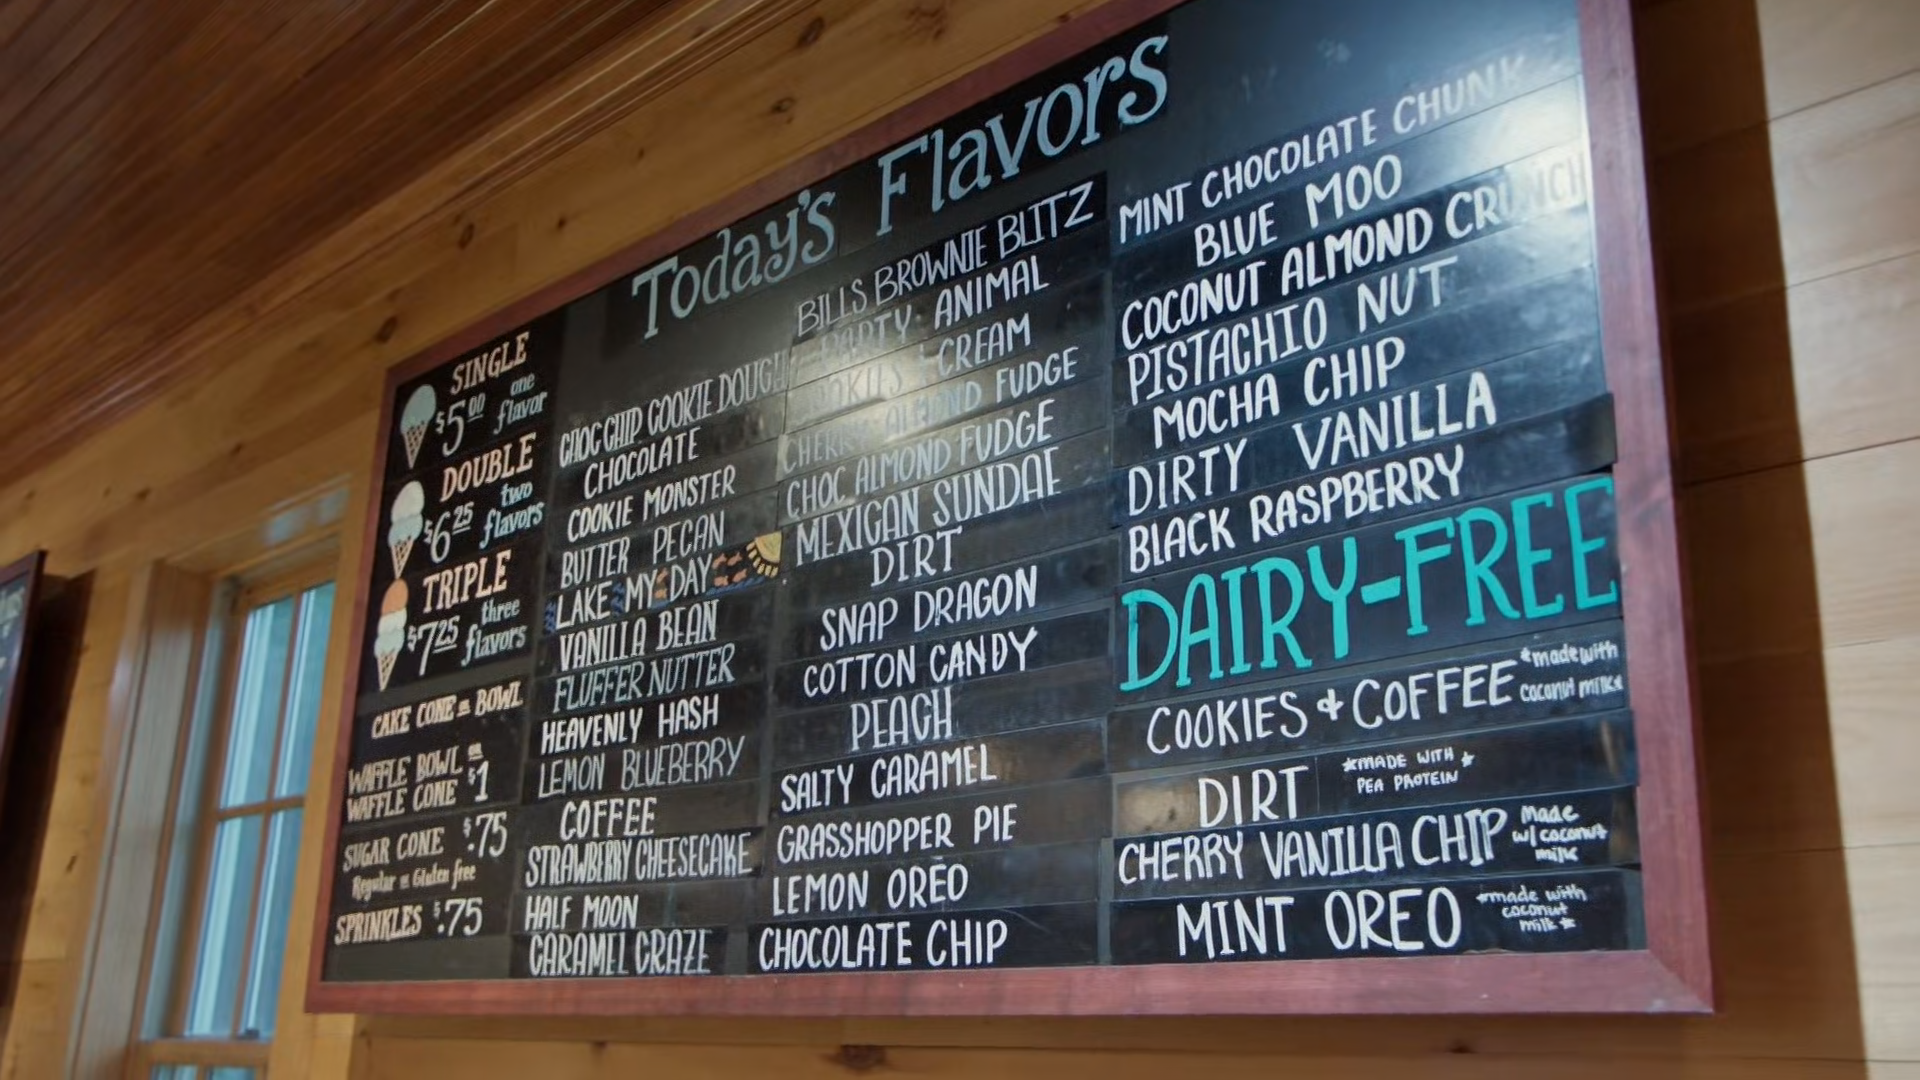 Today's Flavors
SINGLE
$5.00 one flavor
DOUBLE
$6.25 two flavors
TRIPLE
$7.25 three flavors
CAKE CONE or BOWL
WAFFLE BOWL or
WAFFLE CONE $1
SUGAR CONE $.75
Regular or Gluten free
SPRINKLES $.75
CHOC CHIP COOKIE DOUGH
CHOCOLATE
COOKIE MONSTER
BUTTER PECAN
LAKE MY DAY
VANILLA BEAN
FLUFFER NUTTER
HEAVENLY HASH
LEMON BLUEBERRY
COFFEE
STRAWBERRY CHEESECAKE
HALF MOON
CARAMEL CRAZE
BILLS BROWNIE BLITZ
PARTY ANIMAL
COOKIES & CREAM
CHERRY ALMOND FUDGE
CHOC ALMOND FUDGE
MEXICAN SUNDAE
DIRT
SNAP DRAGON
COTTON CANDY
PEACH
SALTY CARAMEL
GRASSHOPPER PIE
LEMON OREO
CHOCOLATE CHIP
MINT CHOCOLATE CHUNK
BLUE MOO
COCONUT ALMOND CRUNCH
PISTACHIO NUT
MOCHA CHIP
DIRTY VANILLA
BLACK RASPBERRY
DAIRY-FREE
COOKIES + COFFEE *made with coconut milk*
DIRT *MADE WITH PEA PROTEIN*
CHERRY VANILLA CHIP made w/ coconut milk
MINT OREO *made with coconut milk*